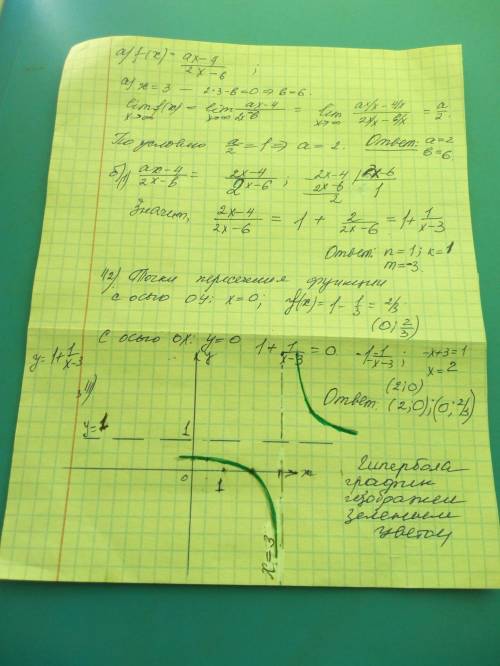 а) f(x) = (ax-4)/(2x-6) ;
а) x = 3 — 2·3-b=0 => b=6.
lim f(x) = lim (ax-4)/(2x-b) = lim (ax/x - 4/x)/(2x/x - b/x) = a/2.
x→∞ x→∞ x→∞
По условию a/2 = 1 => a = 2. Ответ: a=2
b=6.
б) 1) (ax-4)/(2x-b) = (2x-4)/(2x-6) ; 2x-4 | 2x-6
2x-6 | 1
2
Значит, (2x-4)/(2x-6) = 1 + 2/(2x-6) = 1+ 1/(x-3)
Ответ: n=1; k=1
m=-3.
2) Точки пересечения функции
с осью OY: x=0; y(x) = 1- 1/3 = 2/3
(0; 2/3)
С осью OX: y=0 1+ 1/(x-3) = 0 ; -x+3=1
x=2
(2;0)
Ответ: (2;0);(0;2/3)
y=1+ 1/(x-3)
y
y=1
1
0
1
x
x=3
Гипербола
график
изображен
зеленым
цветом